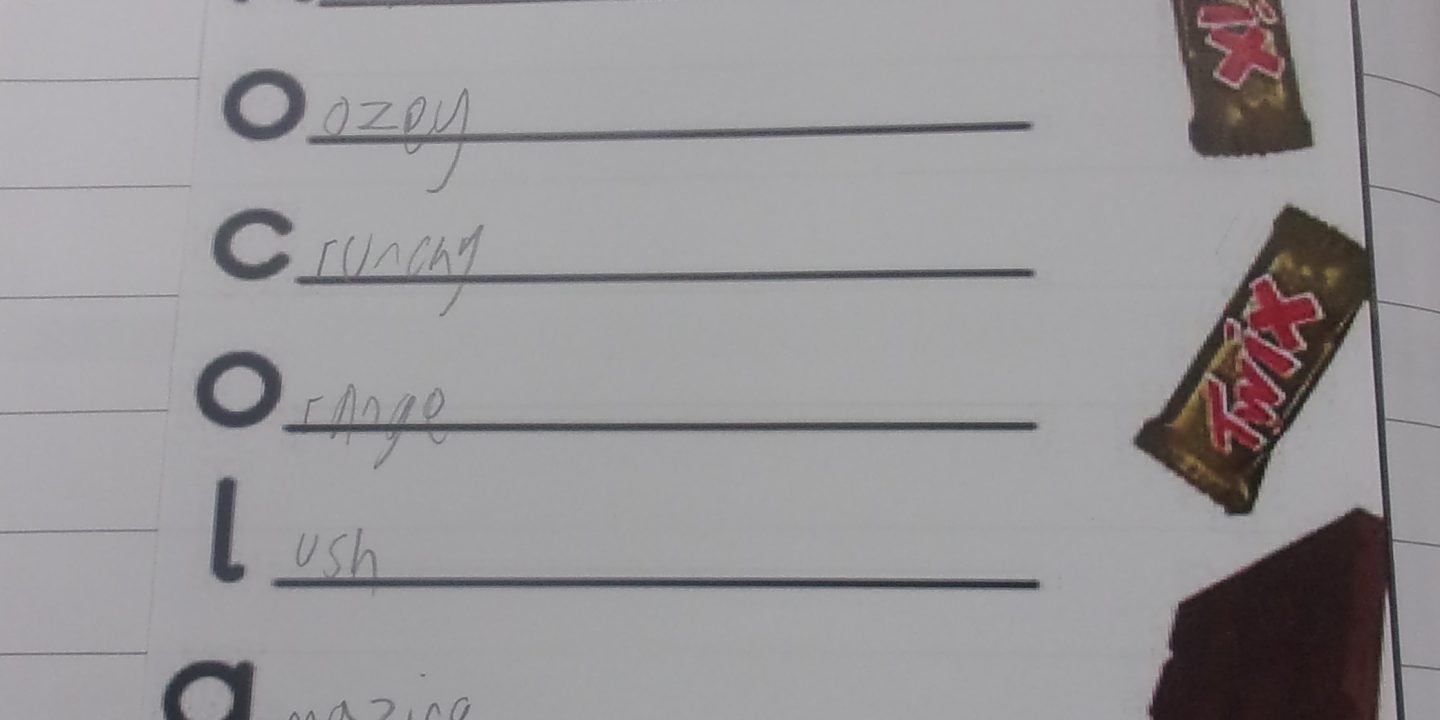 Oozey
Crunchy
Orange
lush
amazing
Twix